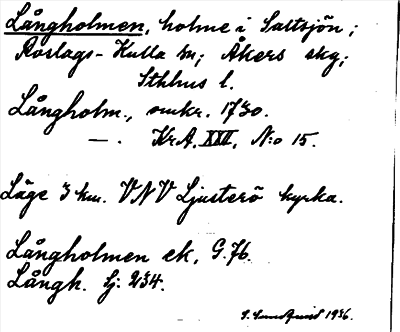 Långholmen, holme i Saltsjön;
Roslags-Kulla sn; Åkers skg;
Sthlms l.
Långholm., omkr. 1730.
— . KrA. XXII, N:o 15.
Läge 3 km. VNV Ljusterö kyrka.
Långholmen ek, G. 76.
Långh. Sj. 234.
1936.